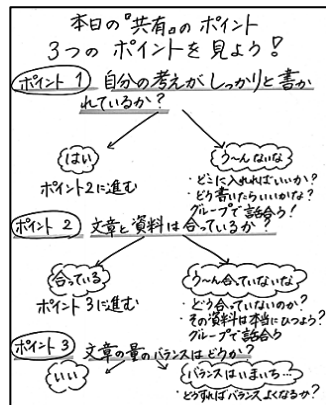 本日の『共有』の ポイント
3つの ポイントを 見よう!
ポイント 1 自分の考えが しっかりと書か
れているか?
はい
う~んないな
ポイント2に進む
・どこに入れればいいか?
・どう書いたらいいかな?
グループで話合う!
ポイント 2 文章と資料は合っているか?
合っている
う~ん合っていないな
ポイント3に進む
・どう合っていないのか?
・その資料は本当にひつよう?
グループで話合う
ポイント 3 文章の量のバランスはどうか?
いい
バランスはいまいち…
・どうすればバランスよくなるか?